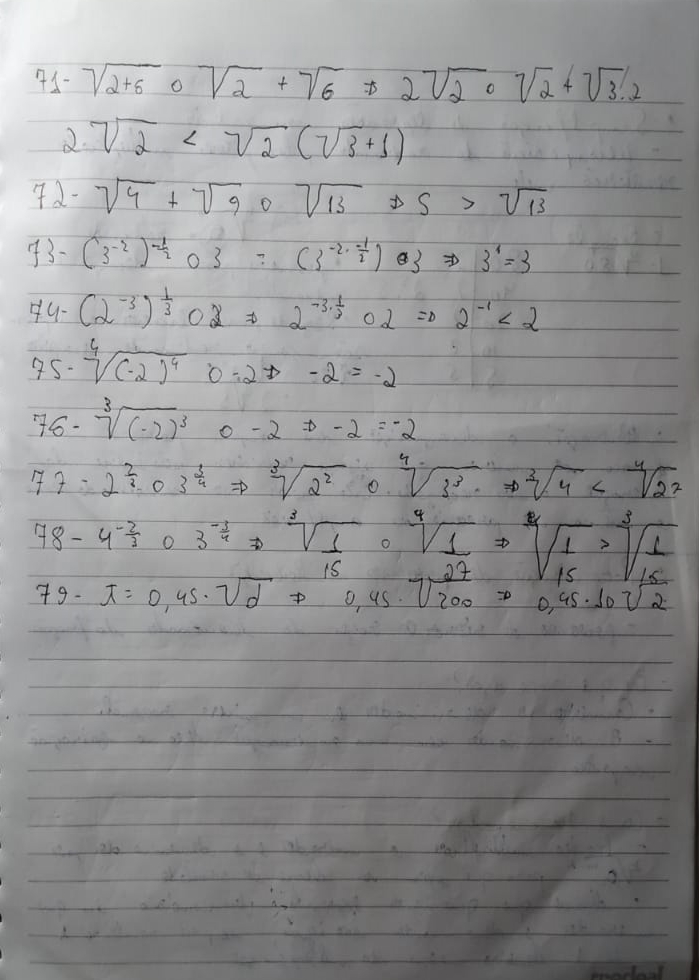 71- √2+6 o √2 + √6 ⇒ 2√2 o √2 + √3.2
2.√2 < √2 (√3+1)
72- √4 + √9 o √13 ⇒ 5 > √13
73- (3⁻²)^-1/2 o 3 = (3^-2·-1/2) o 3 ⇒ 3¹=3
74- (2⁻³)^1/3 o 2 ⇒ 2^-3·1/3 o 2 ⇒ 2⁻¹ < 2
75- ⁴√(-2)⁴ o -2 ⇒ -2 = -2
76- ³√(-2)³ o -2 ⇒ -2 = -2
77- 2^2/3 o 3^3/4 ⇒ ³√2² o ⁴√3³ ⇒ ³√4 < ⁴√27
78- 4^-2/3 o 3^-3/4 ⇒ ³√1/15 o ⁴√1/27 ⇒ √1/15 > ³√1/15
79- T= 0,45·√d ⇒ 0,45·√200 ⇒ 0,45·10√2